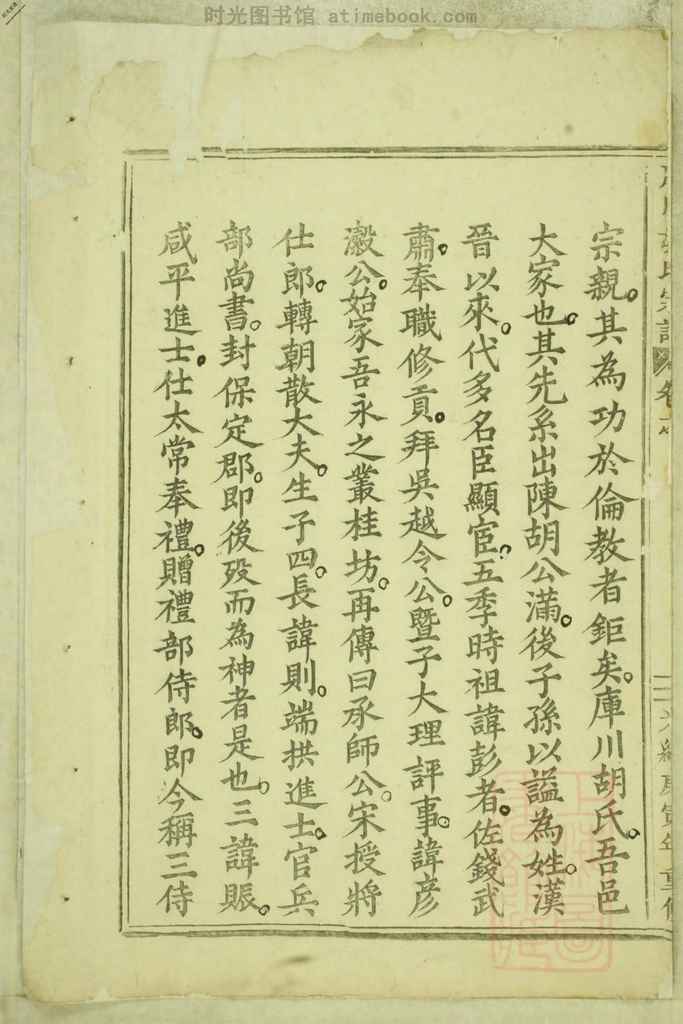 时光图书馆 atimebook.com
宗親。其為功於倫教者鉅矣。庫川胡氏。吾邑
大家也。其先系出陳胡公滿。後子孫以謚為姓。漢
晉以來。代多名臣顯宦。五季時祖諱彭者。佐錢武
肅。奉職修貢。拜吳越令公。暨子大理評事。諱彦
瀫公。始家吾永之叢桂坊。再傳曰承師公。宋授將
仕郎。轉朝散大夫。生子四。長諱則。端拱進士。官兵
部尚書。封保定郡。即後歿而為神者是也。三諱賑。
咸平進士。仕太常奉禮。贈禮部侍郎。即今稱三侍